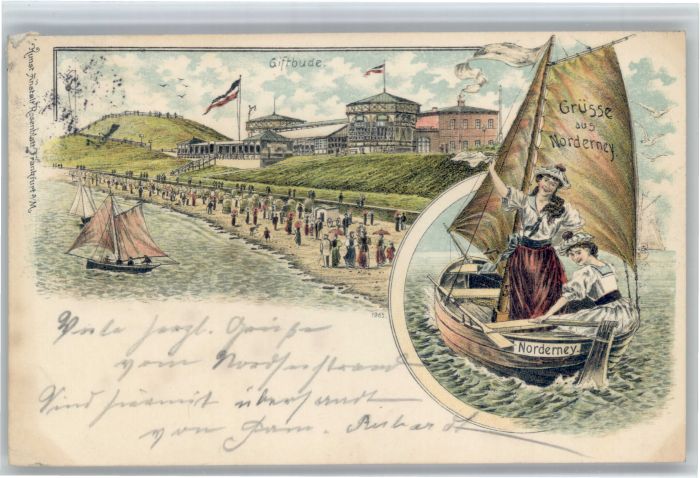 Kunst Anstalt Rosenblatt Frankfurt a/M.
Giftbude.
Grüsse
aus
Norderney.
Norderney
1965
Viele herzl. Grüße
vom Nordseestrand
Sind hiermit übersandt
von Fam. Richardt